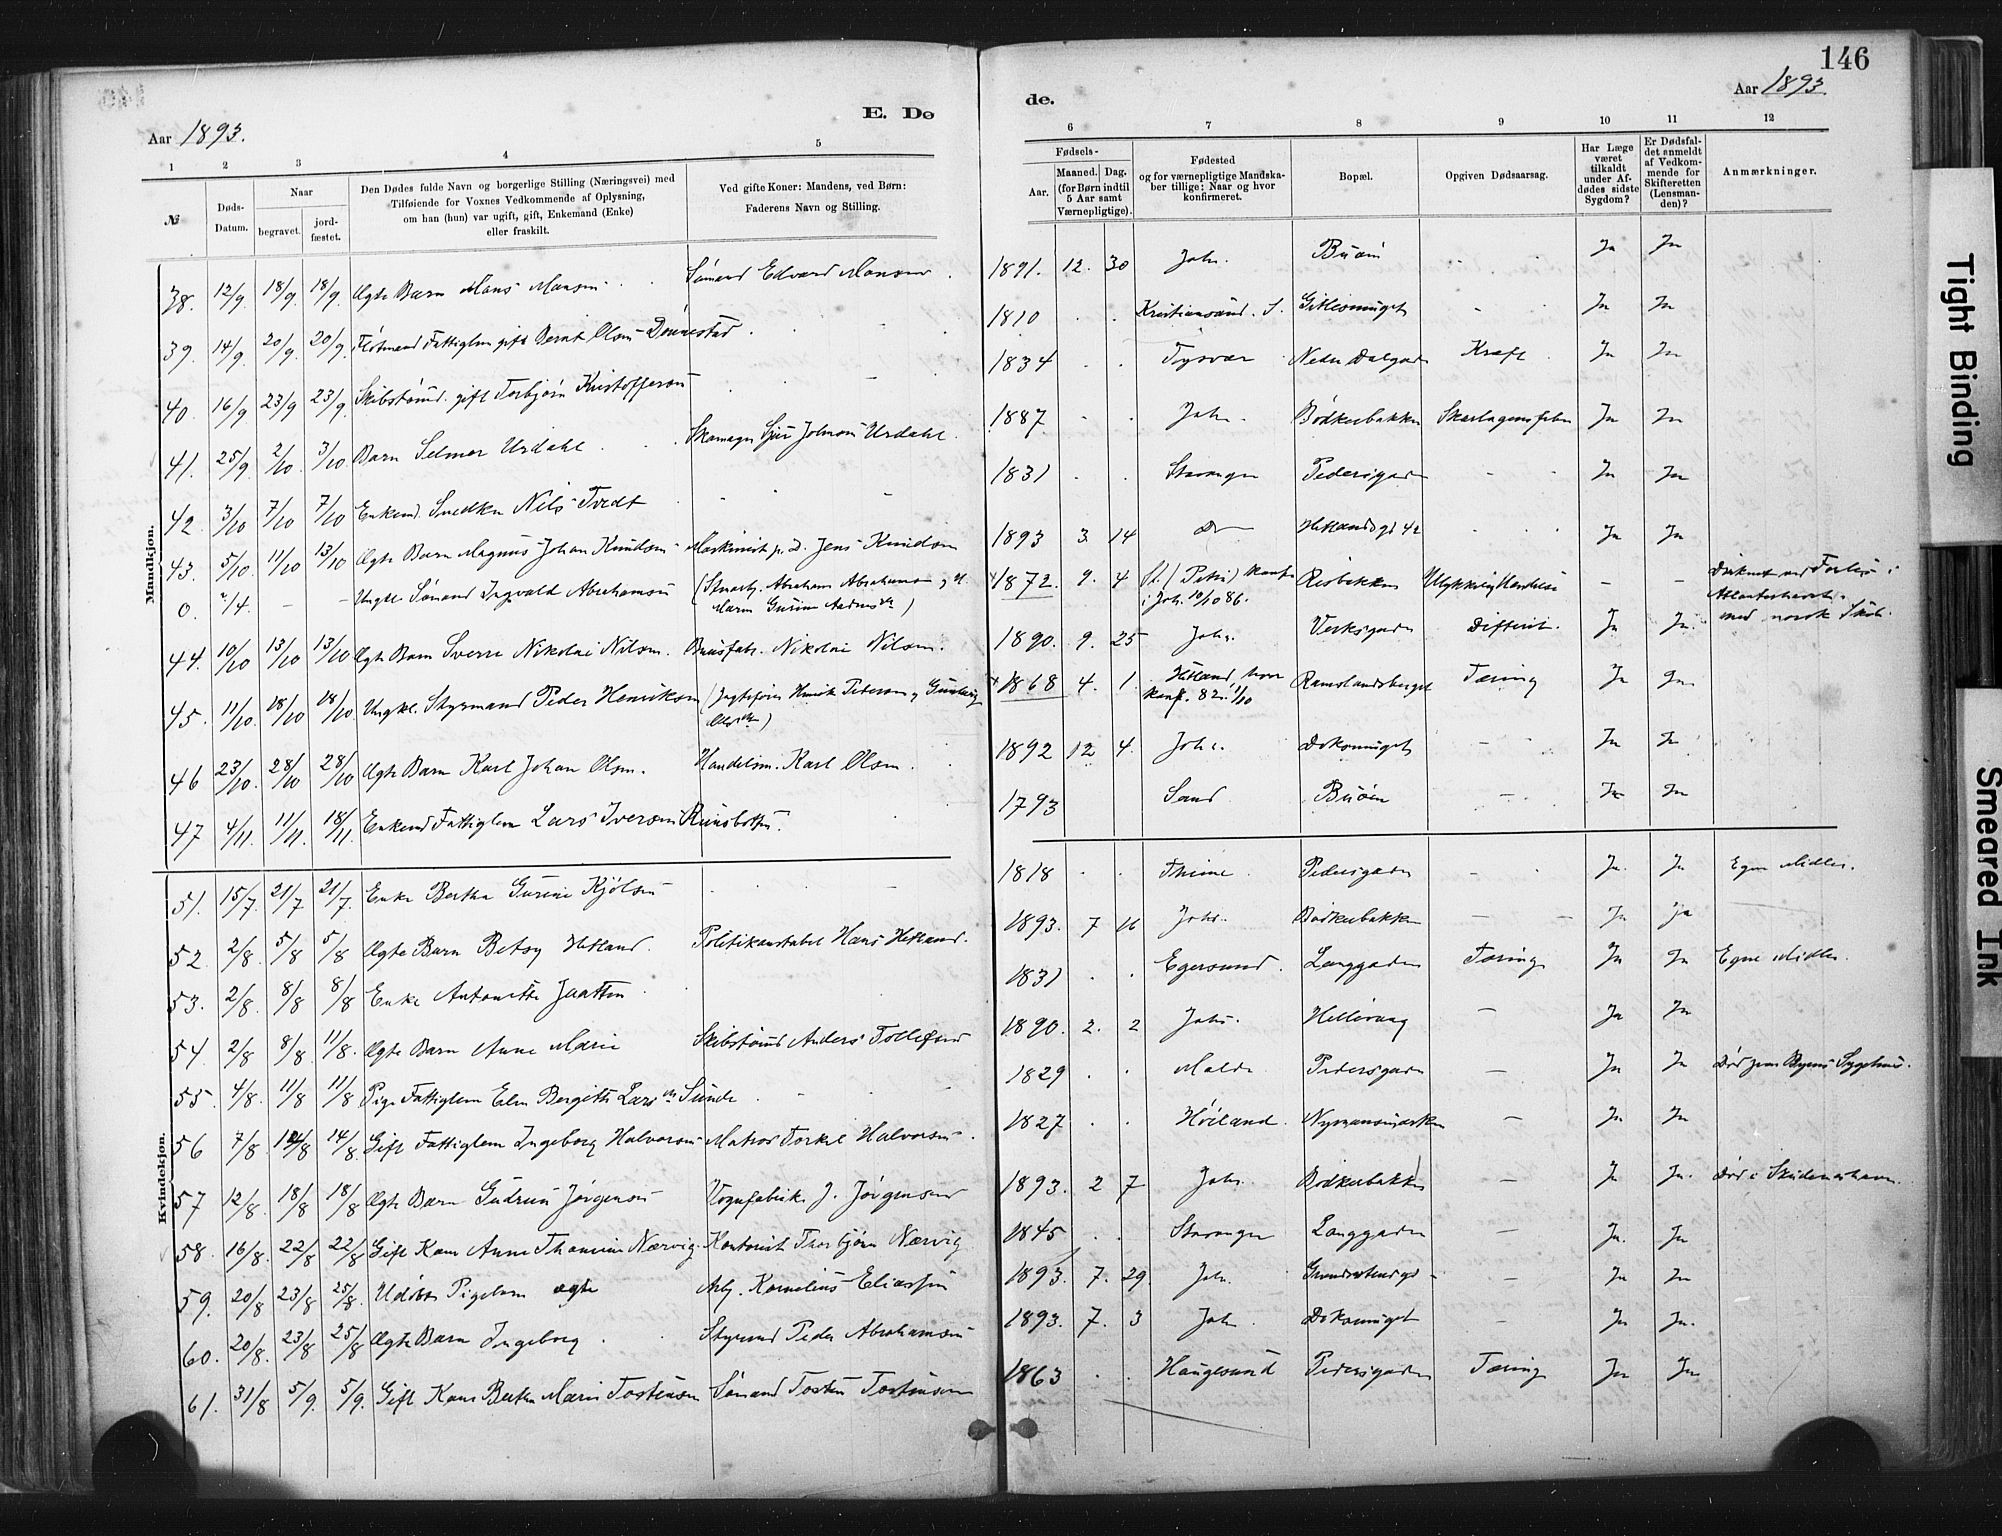 146
E. Dø
de.
Aar 1893.
Aar 1893.
1 2 3 4 5
6 7 8 9 10 11 12
№
Døds-Datum.
Naar
begravet.
jord-fæstet.
Den Dødes fulde Navn og borgerlige Stilling (Næringsvei) med
Tilføiende for Voxnes Vedkommende af Oplysning,
om han (hun) var ugift, gift, Enkemand (Enke)
eller fraskilt.
Ved gifte Koner: Mandens, ved Børn:
Faderens Navn og Stilling.
Fødsels-
Aar.
Maaned. Dag.
(for Børn indtil
5 Aar samt
Værnepligtige).
Fødested
og for værnepligtige Mandska-
ber tillige: Naar og hvor
konfirmeret.
Bopæl.
Opgiven Dødsaarsag.
Har Læge
været
tilkaldt
under Af-
dødes sidste
Sygdom?
Er Dødsfal-
det anmeldt
af Vedkom-
mende for
Skifteretten
(Lensman-
den)?
Anmærkninger.
Mandkjøn.
38. 12/9 18/9. 18/9. Ægte Barn Mons Monsen Sømand Edvard Monsen. 1891. 12. 30 Joh. Buøen Ja Ja
39. 14/9. 20/9. 20/9. Flotmand Fattiglem gift Bernt Olsen Dønnestad. 1810 Kristiansand. S. Gitlesmuget Ja Ja
40. 16/9 23/9 23/9. Skibstømd. gift Torbjørn Kristoffersen 1834 Tysvær Nedre Dalgade Kræft. Ja Ja
41. 25/9 2/10. 3/10. Barn Selmer Urdahl. Skomager Sjur Johnsen Urdahl. 1887 Joh. Bødkerbakken Skarlagensfeber Ja Ja
42. 3/10 7/10 7/10 Enkemd. Snedker Nils Tvedt 1831 Stavanger Pedersgaden Ja Ja
43. 5/10. 11/10 13/10 Ægte Barn Magnus Johan Knudsen Maskinist p. D. Jens Knudsen 1893 3. 14 Do Hetlandsgd 42 Ja Ja
0. /4. – – Ungkl. Sømand Ingvald Abrahamsen (Abraham Abrahamsen og H. 1872. 9. 4 St. (Petri) konf. Risbakken Ulykkelig Hændelse – – Druknet ved Forlis i
Maren Gurine) i Joh. 10/10 86. Atlanterhavet
med norsk Skib.
44. 10/10 13/10 13/10 Ægte Barn Sverre Nikolai Nilsen. Nikolai Nilsen. 1890. 9. 25 Joh. Verksgaden Difterit. Ja Ja.
45. 11/10. 18/10 18/10 Ungkl. Styrmand Peder Henriksen (Jagtefører Henrik Pedersen og 1868 4. 1. Hetland, hvor Ramslandsberget Tæring Ja Ja.
konf. 82. 1/10
46 23/10. 28/10 28/10 Ægte Barn Karl Johan Olsen. Handelsm. Karl Olsen. 1892 12 4. Joh. Dokmuget – Ja Ja
47 4/11. 11/11. 18/11. Enkemd Fattiglem Lars Iversen 1793 Sand Buøen – Ja Ja
Kvindekjøn.
51. 15/7. 21/7 21/7. Enke Bertha Gurine Kjølsen 1818 Thime. Pedersgaden – Ja. Ja Egne Midler.
52. 2/8. 5/8 5/8 Ægte Barn Betsy Hetland. Politikonstabel Hans Hetland. 1893. 7 16 Joh. Bødkerbakken – Ja ja
53. 2/8. 8/8 8/8 Enke Antonette Jaatten 1831 Egersund. Langgaden Tæring Ja Ja Egne Midler.
54. 2/8 8/8. 11/8. Ægte Barn Anne Marie Skibstømd Anders Tollefsen 1890. 2. 2 Joh. Hillevaag – Ja Ja
55. 4/8. 11/8 11/8 Pige Fattiglem Elen Bergitte Larsdtr Sunde 1829 Molde Pedersgaden – Ja Ja Død paa Byens Sygehus.
56 7/8 14/8 14/8. Gift Fattiglem Ingeborg Halvorsen Matros Torkel Halvorsen. 1827 Høiland. Nymansmarken – Ja Ja
57 12/8. 18/8 18/8. Ægte Barn Gudrun Jørgensen Vognfabrik. J. Jørgensen 1893. 2 7 Joh. Bødkerbakken – Ja Ja. Død i Skudeneshavn.
58. 16/8. 22/8 22/8 Gift Kone Anne Thomine Nærvig. Kontorist Thorbjørn Nærvig 1845 Stavanger Langgaden – Ja. Ja
59. 20/8 23/8 25/8. Udøbt Pigebarn ægte Arb. Kornelius Eliassen 1893. 7. 29. Joh. – Ja Ja
60. 20/8. 23/8 25/8 Ægte Barn Ingeborg Styrmd Peder Abrahamsen 1893. 7. 3 Joh. Dokmuget – Ja Ja.
61. 31/8 5/9. 5/9. Gift Kone Berthe Marie Tostensen Sømand Tosten Tostensen 1863 Haugesund Pedersgaden Tæring Ja Ja
Tight Binding
Smeared Ink